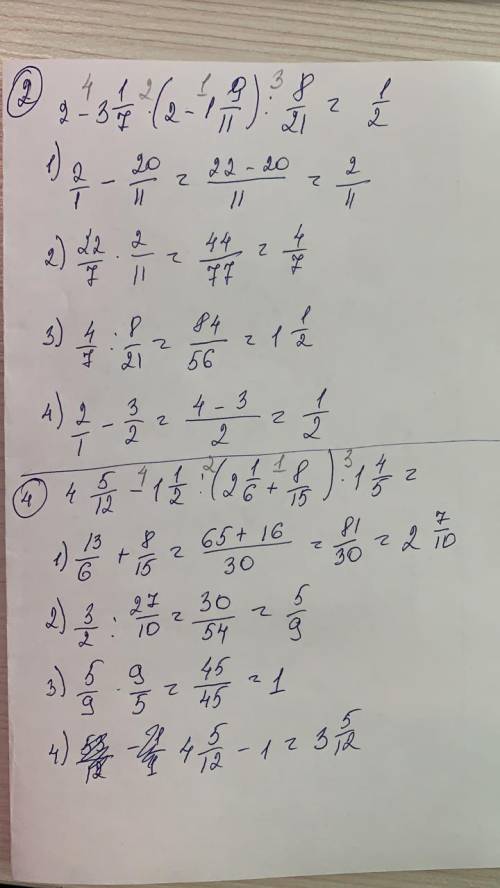 ② 2 - 3 1/7 · (2 - 1 9/11) : 8/21 = 1/2
4 2 1 3
1) 2/1 - 20/11 = (22 - 20)/11 = 2/11
2) 22/7 · 2/11 = 44/77 = 4/7
3) 4/7 : 8/21 = 84/56 = 1 1/2
4) 2/1 - 3/2 = (4 - 3)/2 = 1/2
④ 4 5/12 - 1 1/2 : (2 1/6 + 8/15) · 1 4/5 =
4 2 1 3
1) 13/6 + 8/15 = (65 + 16)/30 = 81/30 = 2 7/10
2) 3/2 : 27/10 = 30/54 = 5/9
3) 5/9 · 9/5 = 45/45 = 1
4) 4 5/12 - 1 = 3 5/12